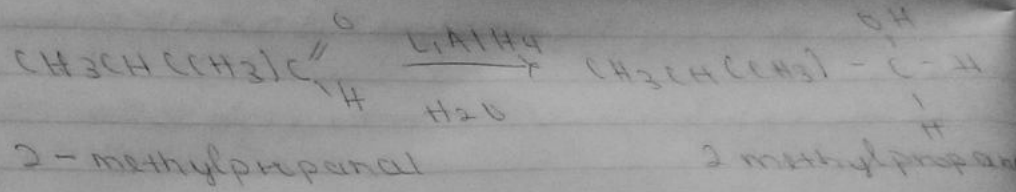 O OH
CH3CH(CH3)C LiAlH4 CH3CH(CH3) - C - H
H H2O H
2-methylpropanal 2 methylpropan